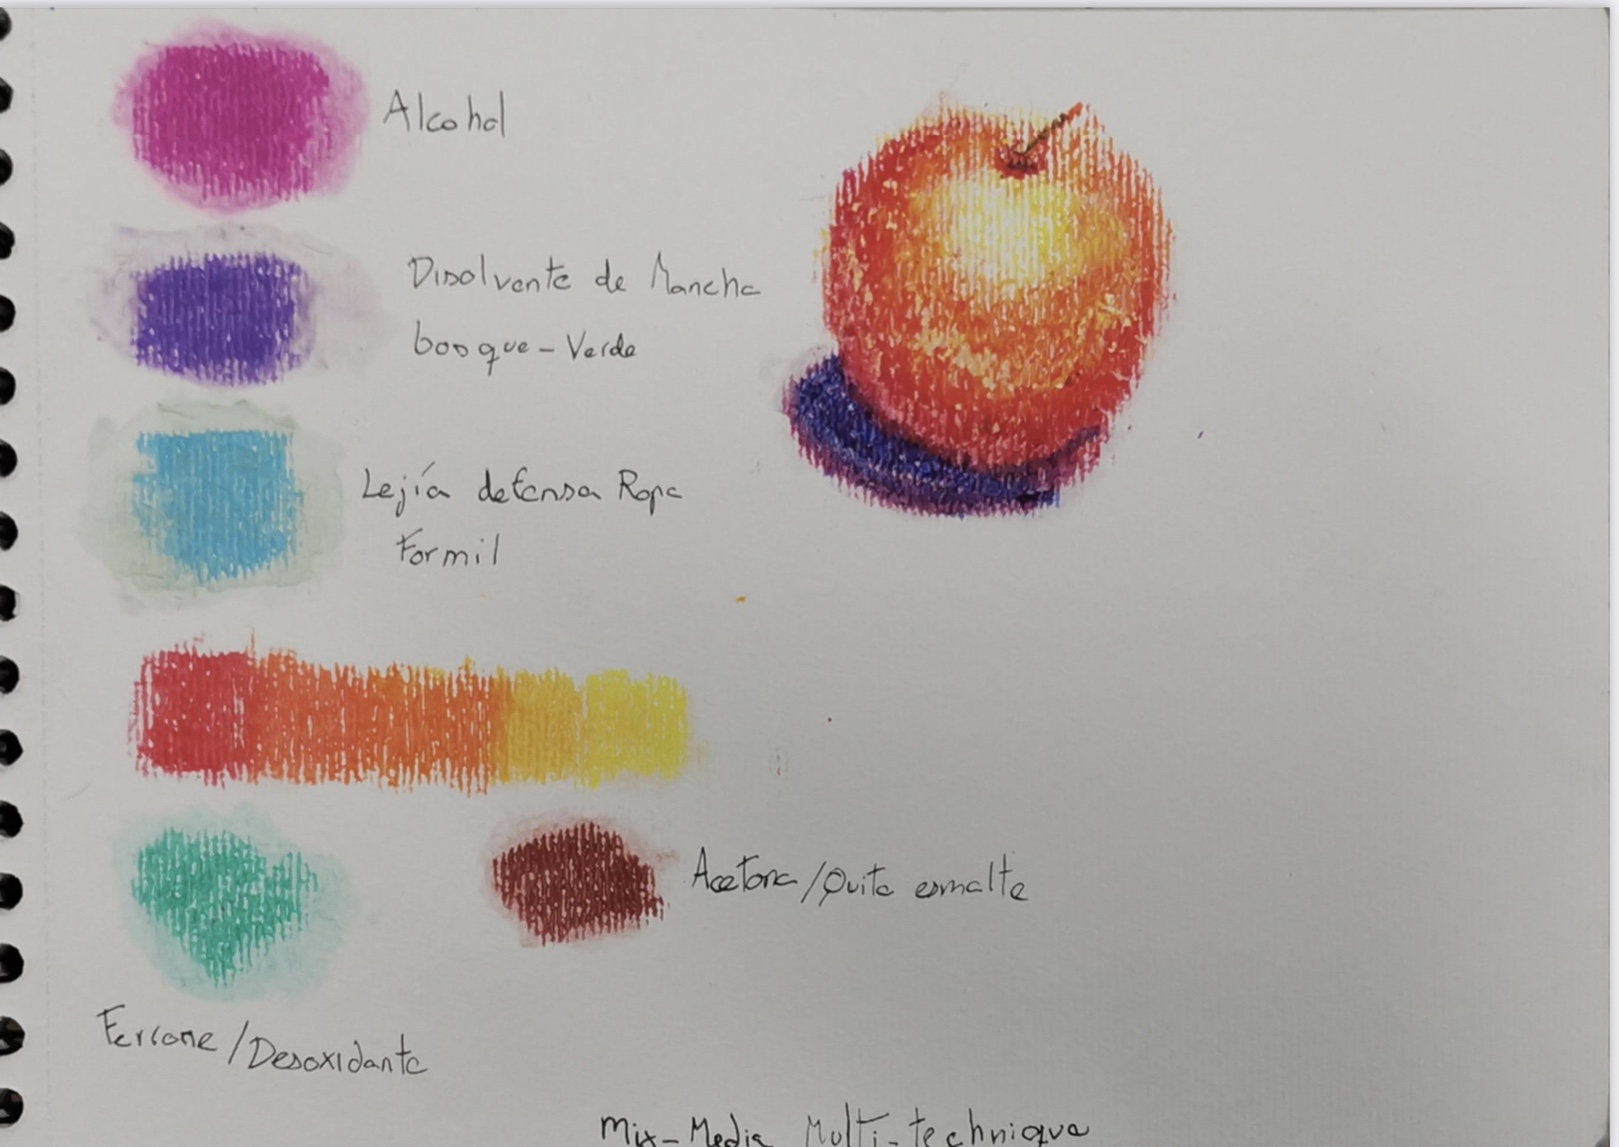 Alcohol
Disolvente de Mancha
bosque-Verde
Lejía defensa Ropa
Formil
Acetona/Quita esmalte
Ferrone/Desoxidante
Mix-Media Multi-technique